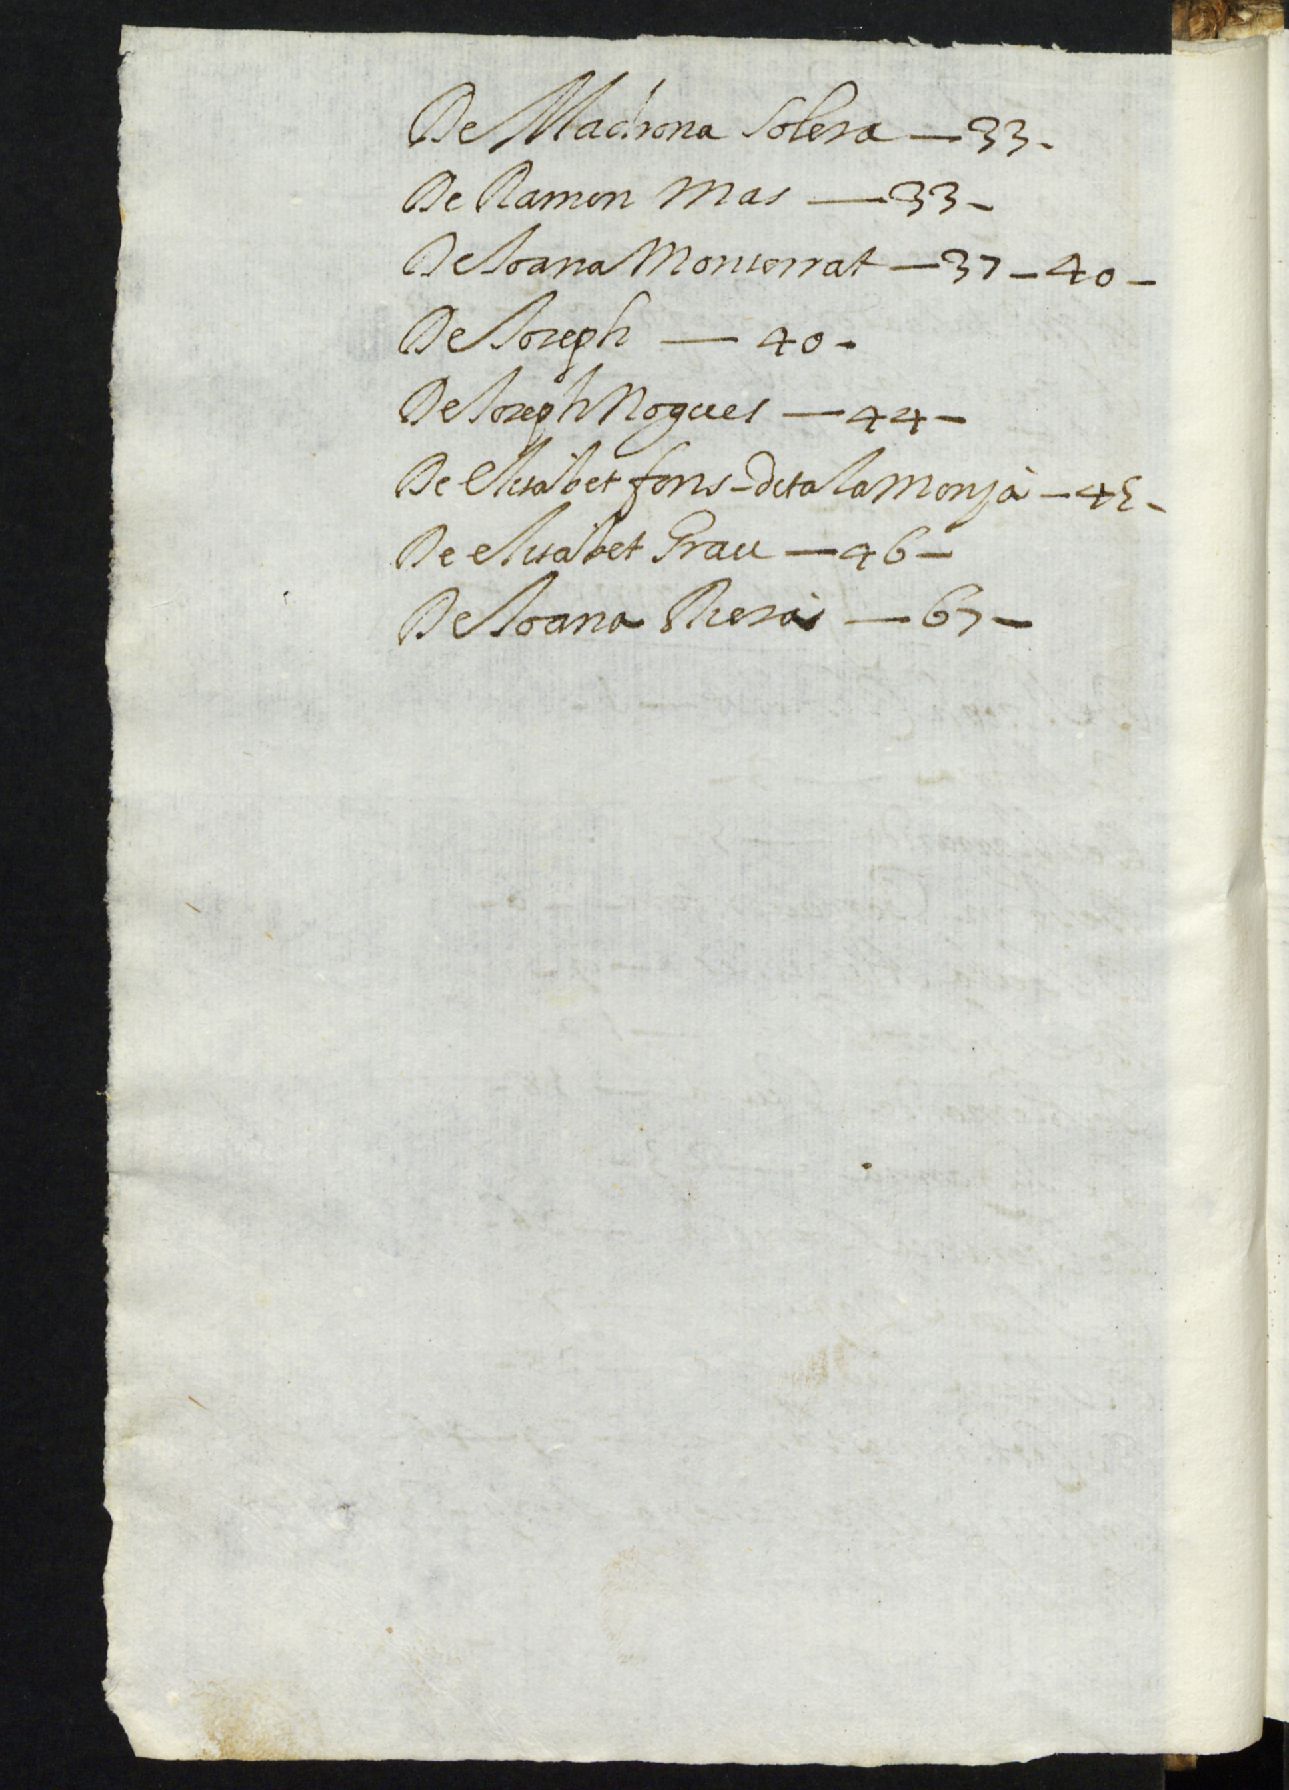 De Madrona Solera — 33 -
De Ramon Mas — 33 -
De Ioana Monserrat — 37 - 40 -
De Ioseph — 40 -
De Ioseph Nogues — 44 -
De Elisabet fons - dita la monja - 45 -
De elisabet Grau — 46 -
De Ioana Rieras — 67 -